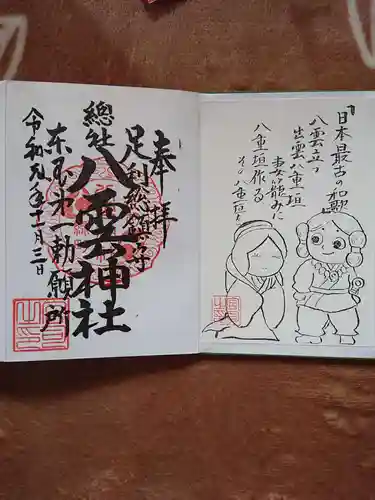 『日本最古の和歌』
八雲立つ
出雲八重垣
妻籠みに
八重垣作る
その八重垣を
奉拝
足利総鎮守
總社
八雲神社
東国第一勅願所
令和元年十一月三日